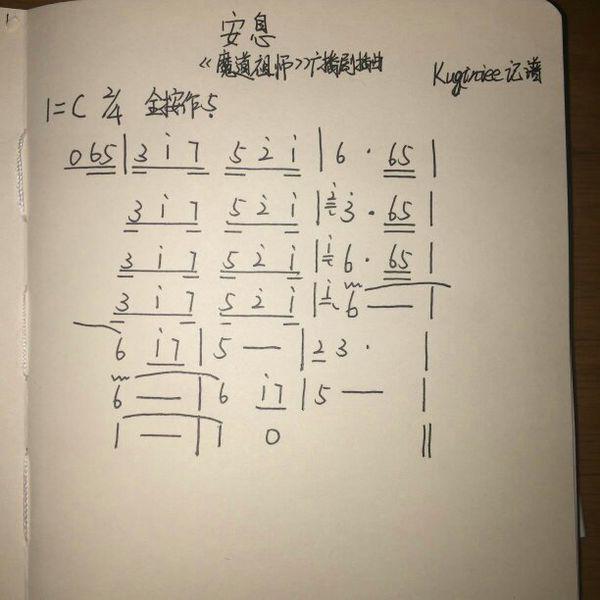 安息
《魔道祖师》广播剧插曲
Kuginiee 记谱
1=C 2/4 全按作5̣
065|3i̇7 52̇i̇|6·65|
3i̇7 52̇i̇|2̇3̇·65|
3i̇7 52̇i̇|i̇6·65|
3i̇7 52̇i̇|i̇6—|
6 i̇7|5—|23·|
6—|6 i̇7|5—|
1—|1 0||